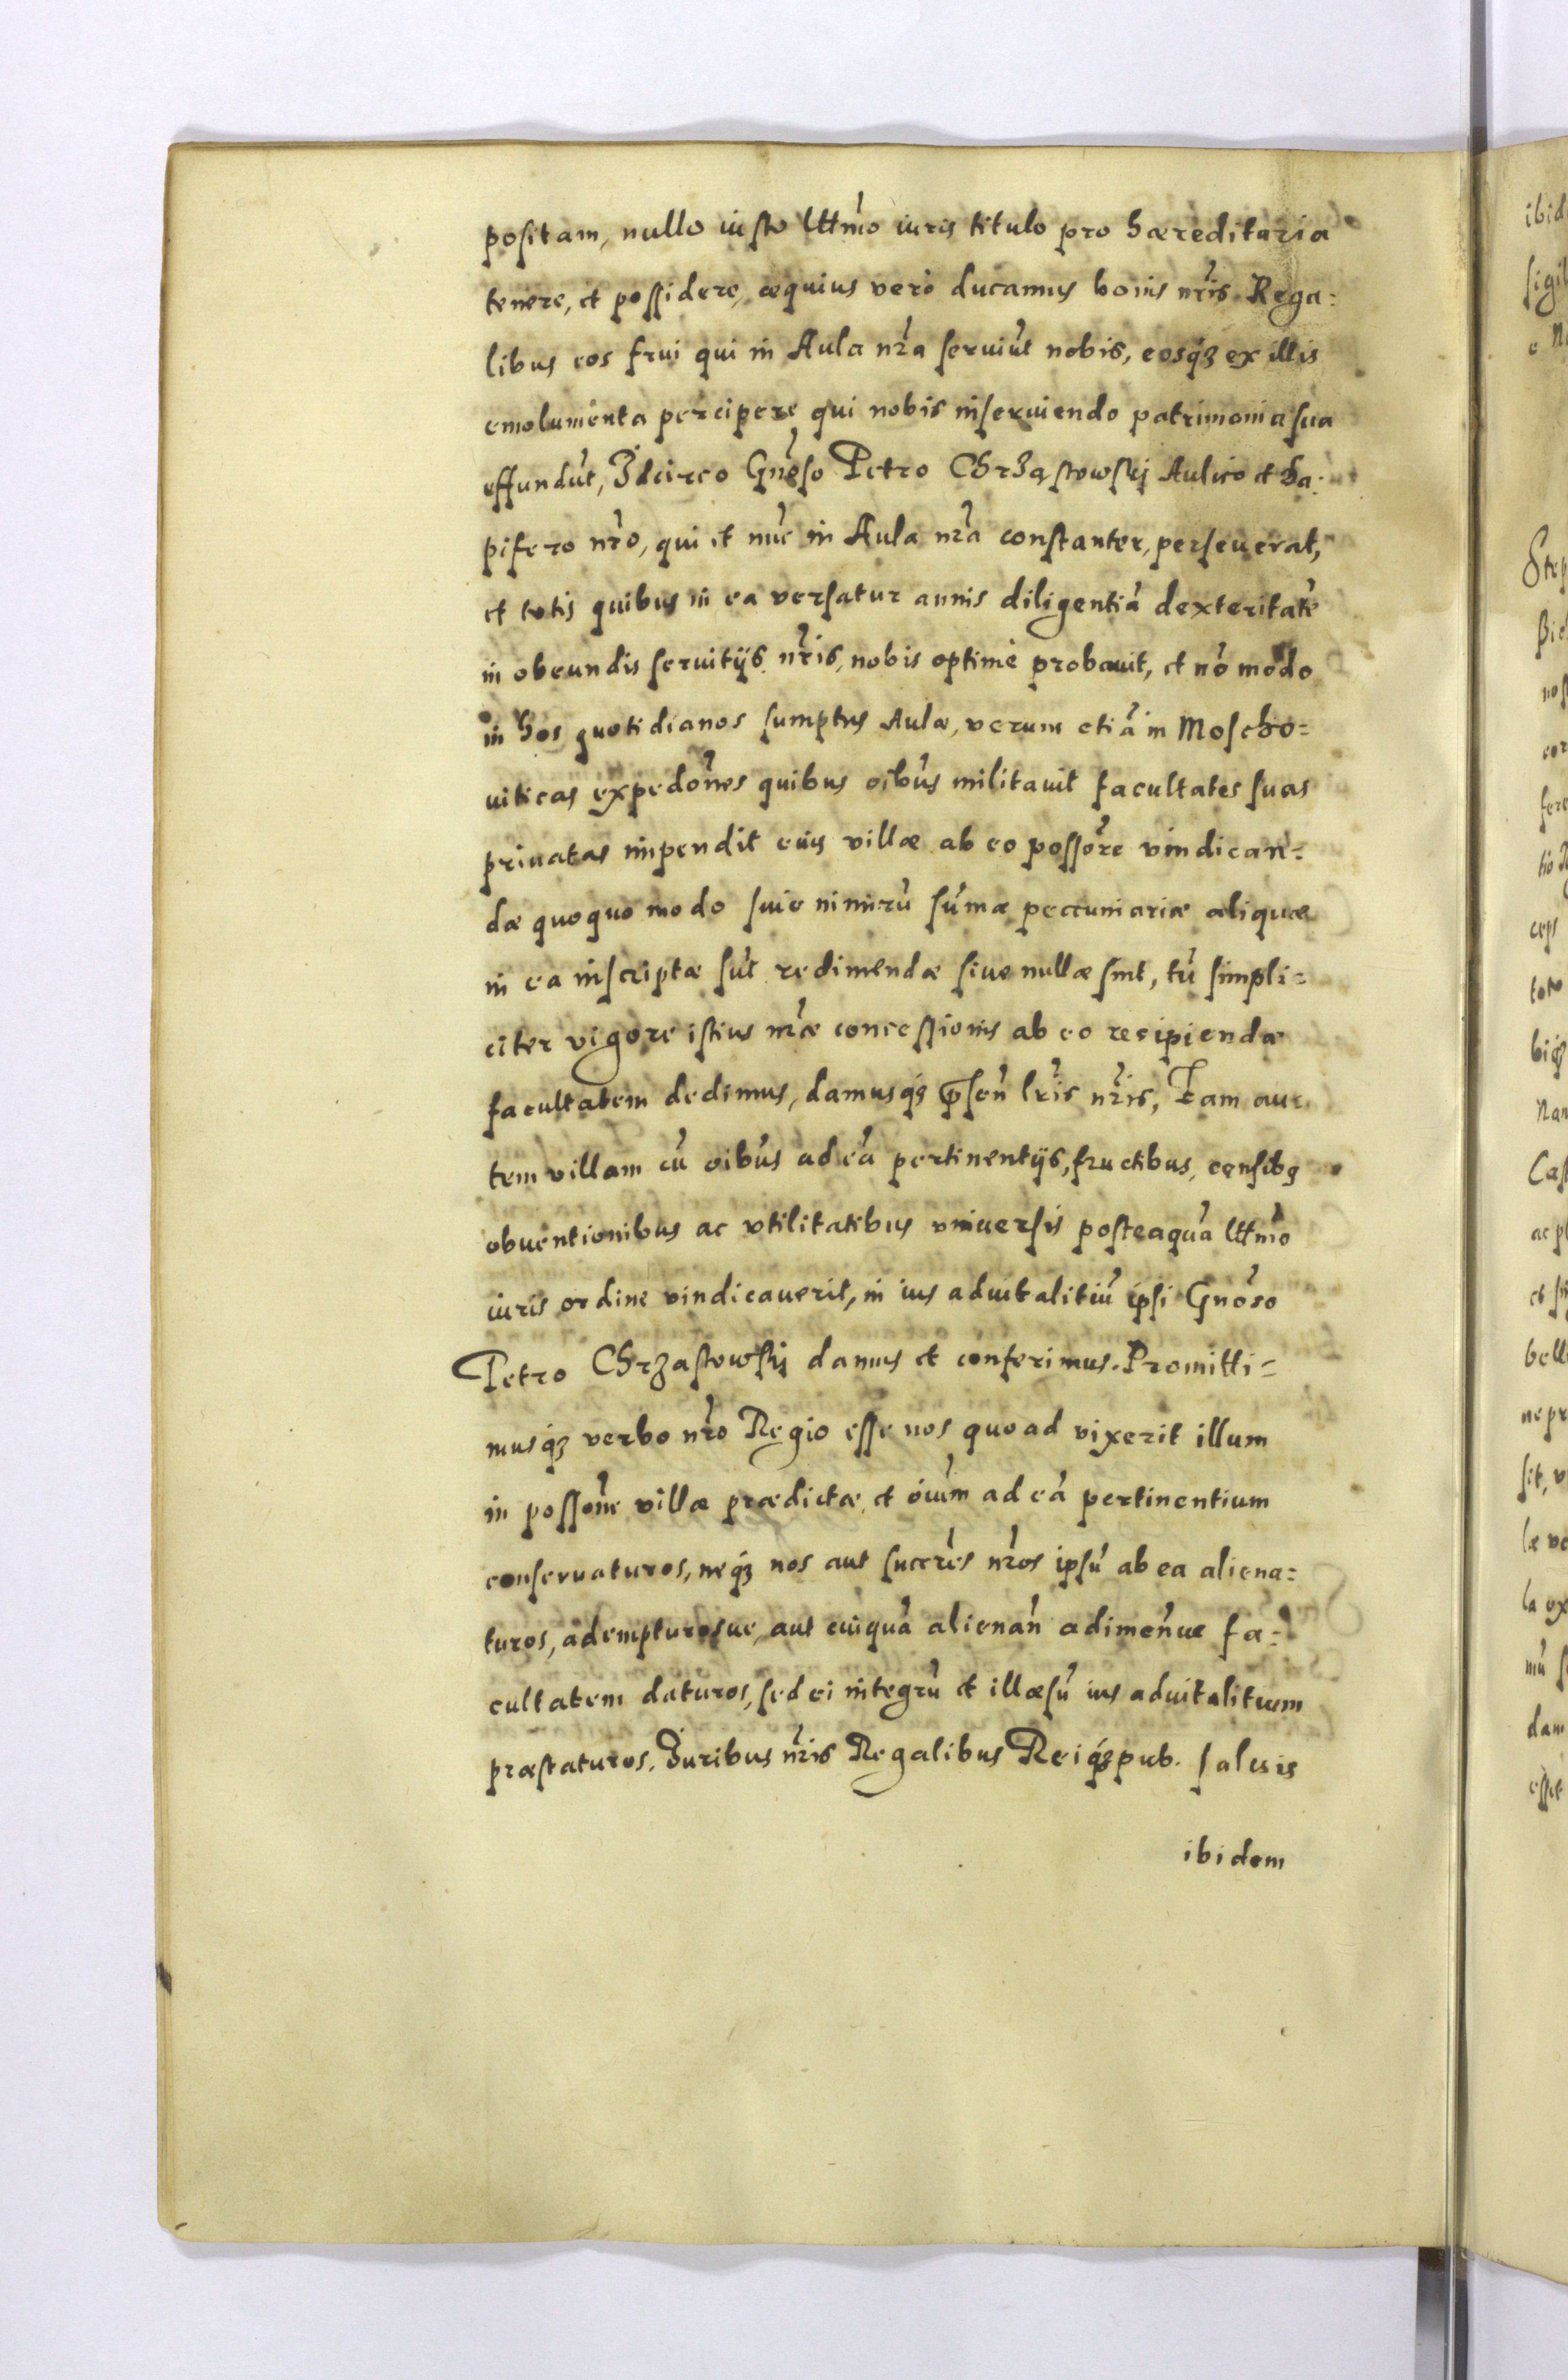 positam, nullo iusto lttmo iuris titulo pro haereditaria
tenere, et possidere, aequius vero ducamus bonis nris Rega:
libus eos frui qui in Aula nra serviut nobis, eosq₃ ex illis
emolumenta percipere qui nobis inserviendo patrimonia sua
effundut, Idcirco Gnoso Petro Chrząstowskj Aulico et Da:
pifero nro, qui et nuc in Aula nra constanter, perseverat,
et totis quibus in ea versatur annis diligentia dexteritate
in obeundis servitijs nris, nobis optime probavit, et no modo
in hos quotidianos sumptus Aulae, verum etia in Moscho=
viticas expedones quibus oibus militavit facultates suas
privatas impendit eius villae ab eo possore vindican=
dae quoquo modo sive nimiru sumae pecuniariae aliquae
in ea inscriptae sut redimendae sive nullae sint, tu simpli=
citer vigore istius nrae concessionis ab eo recipiendae
facultatem dedimus, damusq₃ psen lris nris, Eam au=
tem villam cu oibus ad ea pertinentijs, fructibus, censibq
obventionibus ac vtilitatibus vniversis posteaqua lttmo
iuris ordine vindicaverit, in ius advitalitiu ipsi Gnoso
Petro Chrzastowskj damus et conferimus. Promitti=
musq₃ verbo nro Regio esse nos quoad vixerit illum
in possone villae praedictae et oium ad ea pertinentium
conservaturos, neq₃ nos aut succres nros ipsu ab ea aliena=
turos, adempturosve, aut cuiqua alienan adimenve fa=
cultatem daturos, sed ei integru et illaesu ius advitalitium
praestaturos. Iuribus nris Regalibus Reiq₃pub. salvis
ibidem
ibid
sigil
Step
Cas
ceps
toto
dam